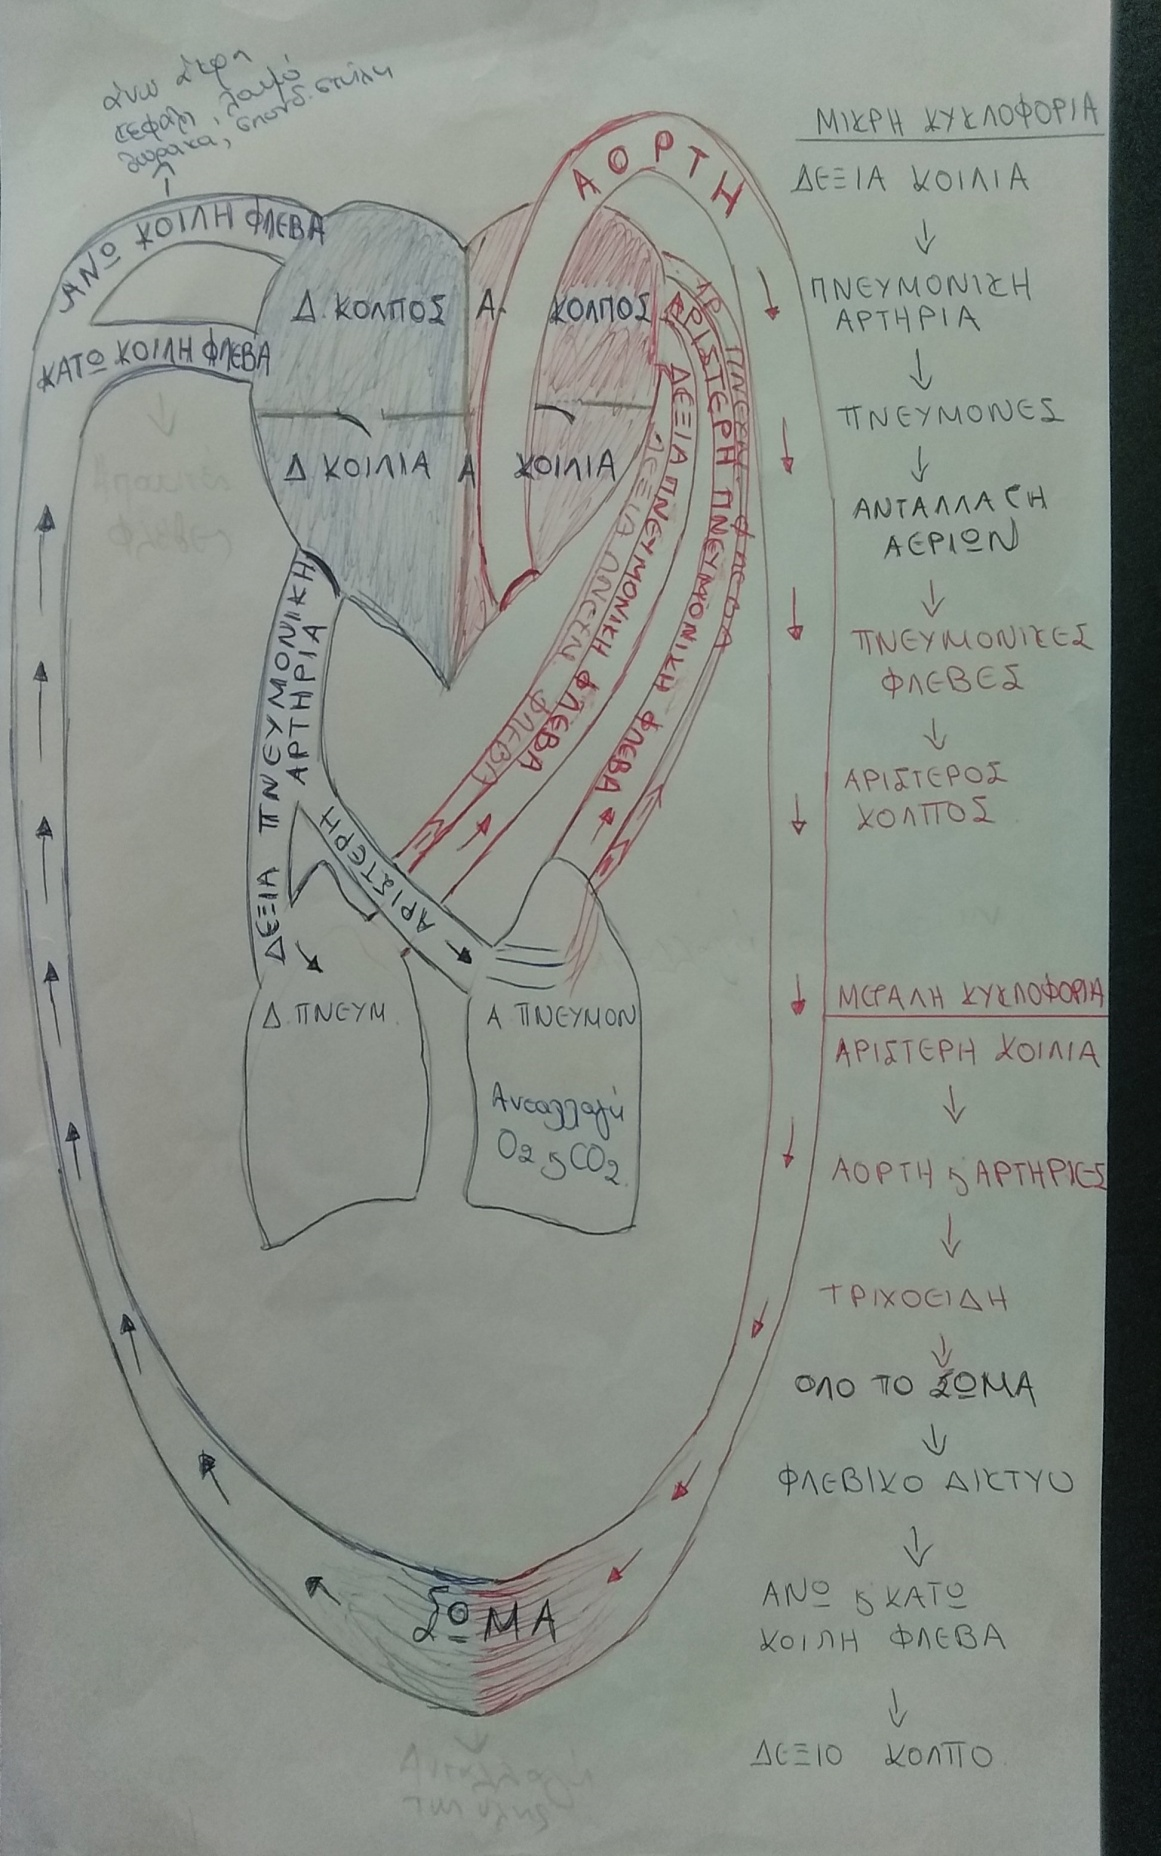 άνω άκρη
κεφάλι, λαιμό
θώρακα, σπονδ. στήλη
ΑΝΩ ΚΟΙΛΗ ΦΛΕΒΑ
ΚΑΤΩ ΚΟΙΛΗ ΦΛΕΒΑ
ΑΟΡΤΗ
Δ. ΚΟΛΠΟΣ
Α. ΚΟΛΠΟΣ
Δ. ΚΟΙΛΙΑ
Α ΚΟΙΛΙΑ
ΑΡΙΣΤΕΡΗ ΠΝΕΥΜΟΝΙΚΗ ΦΛΕΒΑ
ΔΕΞΙΑ ΠΝΕΥΜΟΝΙΚΗ ΦΛΕΒΑ
ΔΕΞΙΑ ΠΝΕΥΜ ΦΛΕΒΑ
ΑΡ ΠΝΕΥΜ. ΦΛΕΒΑ
ΔΕΞΙΑ ΠΝΕΥΜΟΝΙΚΗ
ΑΡΤΗΡΙΑ
ΑΡΙΣΤΕΡΗ ΑΡ
Δ. ΠΝΕΥΜ.
Α ΠΝΕΥΜΟΝ
Ανταλλαγή
O2 ϗ CO2
ΣΩΜΑ
ΜΙΚΡΗ ΚΥΚΛΟΦΟΡΙΑ
ΔΕΞΙΑ ΚΟΙΛΙΑ
ΠΝΕΥΜΟΝΙΚΗ
ΑΡΤΗΡΙΑ
ΠΝΕΥΜΟΝΕΣ
ΑΝΤΑΛΛΑΓΗ
ΑΕΡΙΩΝ
ΠΝΕΥΜΟΝΙΚΕΣ
ΦΛΕΒΕΣ
ΑΡΙΣΤΕΡΟΣ
ΚΟΛΠΟΣ
ΜΕΓΑΛΗ ΚΥΚΛΟΦΟΡΙΑ
ΑΡΙΣΤΕΡΗ ΚΟΙΛΙΑ
ΑΟΡΤΗ ϗ ΑΡΤΗΡΙΕΣ
ΤΡΙΧΟΕΙΔΗ
ΟΛΟ ΤΟ ΣΩΜΑ
ΦΛΕΒΙΚΟ ΔΙΚΤΥΟ
ΑΝΩ ϗ ΚΑΤΩ
ΚΟΙΛΗ ΦΛΕΒΑ
ΔΕΞΙΟ ΚΟΛΠΟ